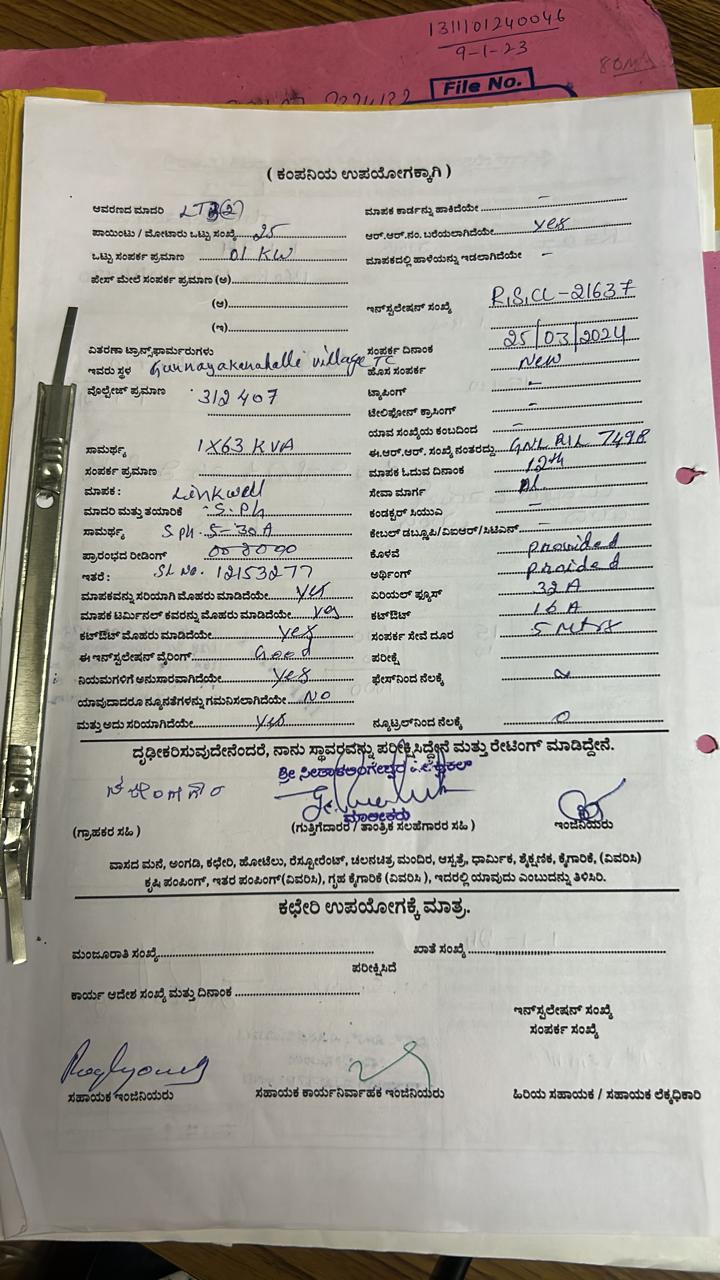 1311101240046
9-1-23
80M
File No.
( ಕಂಪನಿಯ ಉಪಯೋಗಕ್ಕಾಗಿ )
ಆವರಣದ ಮಾದರಿ LT
ಪಾಯಿಂಟು / ಮೋಟಾರು ಒಟ್ಟು ಸಂಖ್ಯೆ 25
ಒಟ್ಟು ಸಂಪರ್ಕ ಪ್ರಮಾಣ 01 KW
ಫೇಸ್ ಮೇಲೆ ಸಂಪರ್ಕ ಪ್ರಮಾಣ (ಅ)
(ಆ)
(ಇ)
ವಿತರಣಾ ಟ್ರಾನ್ಸ್‌ಫಾರ್ಮರುಗಳು
ಇವರು ಸ್ಥಳ Gunnayakanahalli village TC
ವೊಲ್ಟೇಜ್ ಪ್ರಮಾಣ 312407
ಸಾಮರ್ಥ್ಯ 1X63 KVA
ಸಂಪರ್ಕ ಪ್ರಮಾಣ
ಮಾಪಕ : Linkwell
ಮಾದರಿ ಮತ್ತು ತಯಾರಿಕೆ S.Ph
ಸಾಮರ್ಥ್ಯ S ph. 5-30A
ಪ್ರಾರಂಭದ ರೀಡಿಂಗ್
ಇತರೆ : SL No. 12153277
ಮಾಪಕವನ್ನು ಸರಿಯಾಗಿ ಮೊಹರು ಮಾಡಿದೆಯೇ yes
ಮಾಪಕ ಟರ್ಮಿನಲ್ ಕವರನ್ನು ಮೊಹರು ಮಾಡಿದೆಯೇ yes
ಕಟ್‌ಔಟ್ ಮೊಹರು ಮಾಡಿದೆಯೇ yes
ಈ ಇನ್‌ಸ್ಟಲೇಷನ್ ವೈರಿಂಗ್ Good
ನಿಯಮಗಳಿಗೆ ಅನುಸಾರವಾಗಿದೆಯೇ yes
ಯಾವುದಾದರೂ ನ್ಯೂನತೆಗಳನ್ನು ಗಮನಿಸಲಾಗಿದೆಯೇ NO
ಮತ್ತು ಅದು ಸರಿಯಾಗಿದೆಯೇ Yes
ಮಾಪಕ ಕಾರ್ಡನ್ನು ಹಾಕಿದೆಯೇ -
ಆರ್.ಆರ್.ನಂ. ಬರೆಯಲಾಗಿದೆಯೇ yes
ಮಾಪಕದಲ್ಲಿ ಹಾಳೆಯನ್ನು ಇಡಲಾಗಿದೆಯೇ -
ಇನ್‌ಸ್ಟಲೇಷನ್ ಸಂಖ್ಯೆ R,S,CL-21637
ಸಂಪರ್ಕ ದಿನಾಂಕ 25/03/2024
ಹೊಸ ಸಂಪರ್ಕ New
ಟ್ಯಾಪಿಂಗ್ -
ಟೆಲಿಫೋನ್ ಕ್ರಾಸಿಂಗ್ -
ಯಾವ ಸಂಖ್ಯೆಯ ಕಂಬದಿಂದ -
ಈ.ಆರ್.ಆರ್. ಸಂಖ್ಯೆ ನಂತರದ್ದು
ಮಾಪಕ ಓದುವ ದಿನಾಂಕ 12th
ಸೇವಾ ಮಾರ್ಗ AL
ಕಂಡಕ್ಟರ್ ಸಿಯುಎ -
ಕೇಬಲ್ ಡಬ್ಲೂಪಿ/ವಿಐಆರ್/ಸಿಟಿಎಸ್ -
ಕೊಳವೆ provided
ಅರ್ಥಿಂಗ್ provided
ಏರಿಯಲ್ ಫ್ಯೂಸ್ 32 A
ಕಟ್‌ಔಟ್ 16 A
ಸಂಪರ್ಕ ಸೇವೆ ದೂರ 5 Mtrs
ಪರೀಕ್ಷೆ
ಫೇಸ್‌ನಿಂದ ನೆಲಕ್ಕೆ
ನ್ಯೂಟ್ರಲ್‌ನಿಂದ ನೆಲಕ್ಕೆ 0
ದೃಢೀಕರಿಸುವುದೇನೆಂದರೆ, ನಾನು ಸ್ಥಾವರವನ್ನು ಪರೀಕ್ಷಿಸಿದ್ದೇನೆ ಮತ್ತು ರೇಟಿಂಗ್ ಮಾಡಿದ್ದೇನೆ.
ಮಾಲೀಕರು
(ಗ್ರಾಹಕರ ಸಹಿ ) (ಗುತ್ತಿಗೆದಾರರ / ತಾಂತ್ರಿಕ ಸಲಹೆಗಾರರ ಸಹಿ ) ಇಂಜಿನಿಯರು
ವಾಸದ ಮನೆ, ಅಂಗಡಿ, ಕಛೇರಿ, ಹೋಟೆಲು, ರೆಸ್ಟೋರೆಂಟ್, ಚಲನಚಿತ್ರ ಮಂದಿರ, ಆಸ್ಪತ್ರೆ, ಧಾರ್ಮಿಕ, ಶೈಕ್ಷಣಿಕ, ಕೈಗಾರಿಕೆ, (ವಿವರಿಸಿ)
ಕೃಷಿ ಪಂಪಿಂಗ್, ಇತರ ಪಂಪಿಂಗ್(ವಿವರಿಸಿ), ಗೃಹ ಕೈಗಾರಿಕೆ (ವಿವರಿಸಿ ), ಇದರಲ್ಲಿ ಯಾವುದು ಎಂಬುದನ್ನು ತಿಳಿಸಿರಿ.
ಕಛೇರಿ ಉಪಯೋಗಕ್ಕೆ ಮಾತ್ರ.
ಮಂಜೂರಾತಿ ಸಂಖ್ಯೆ ಖಾತೆ ಸಂಖ್ಯೆ
ಪರೀಕ್ಷಿಸಿದೆ
ಕಾರ್ಯ ಆದೇಶ ಸಂಖ್ಯೆ ಮತ್ತು ದಿನಾಂಕ
ಇನ್‌ಸ್ಟಲೇಷನ್ ಸಂಖ್ಯೆ
ಸಂಪರ್ಕ ಸಂಖ್ಯೆ
ಸಹಾಯಕ ಇಂಜಿನಿಯರು ಸಹಾಯಕ ಕಾರ್ಯನಿರ್ವಾಹಕ ಇಂಜಿನಿಯರು ಹಿರಿಯ ಸಹಾಯಕ / ಸಹಾಯಕ ಲೆಕ್ಕಧಿಕಾರಿ